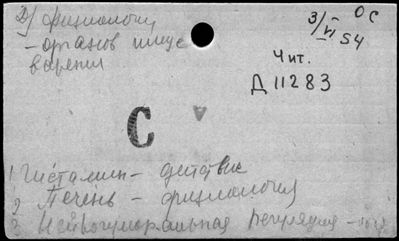 Д/ физиологии
- органов пище
варения
3/VI 54
ОС
Чит.
Д 11283
С
1 Гистамин - действие
2 Печень - физиология
3 Нейрогуморальная регуляция -